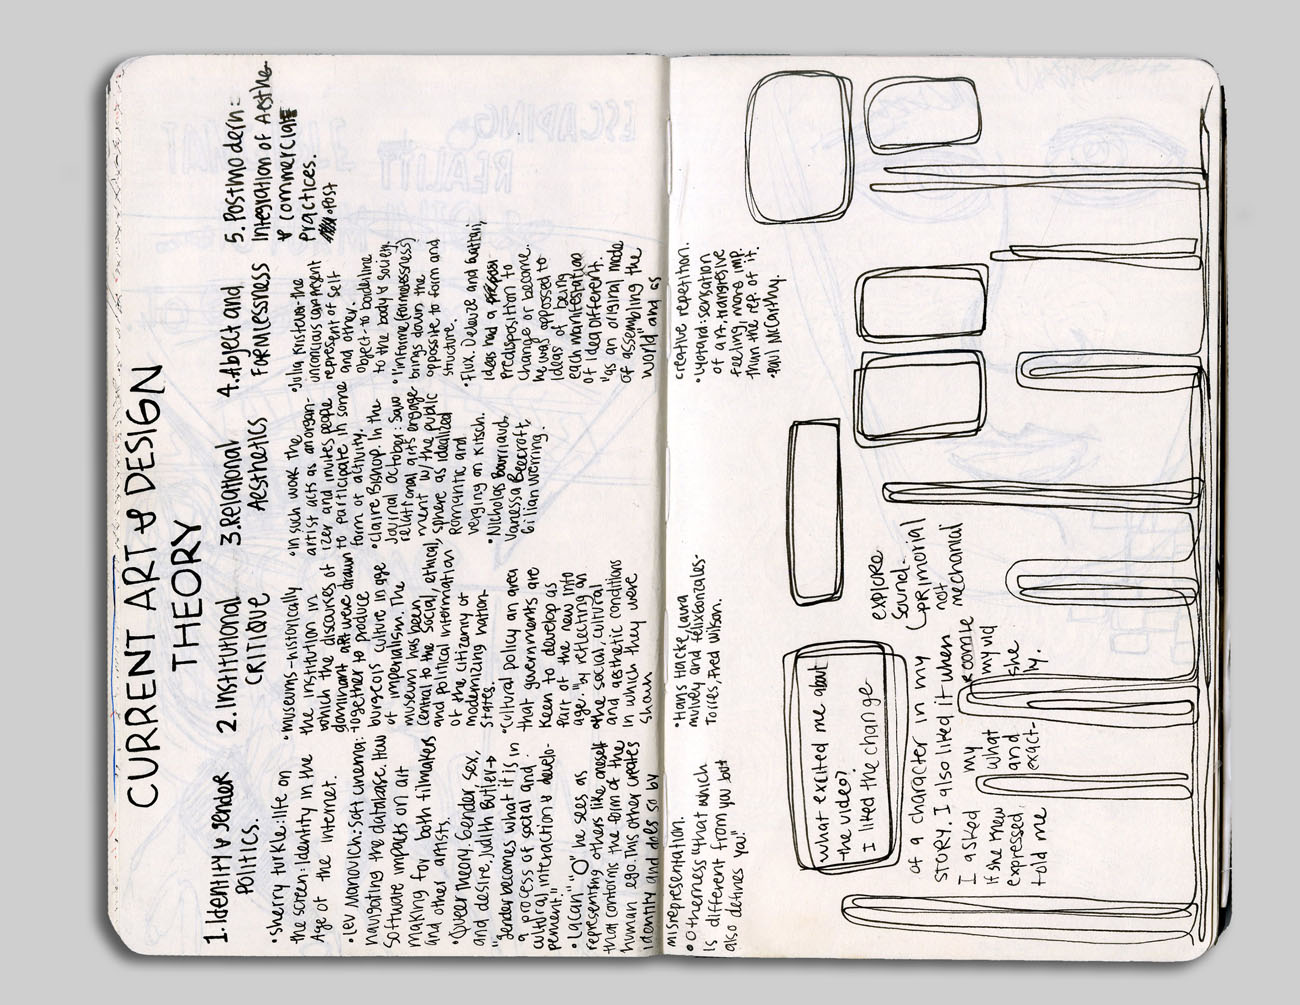 CURRENT ART & DESIGN
THEORY
1. Identity & Gender
Politics.
• Sherry turkle: life on
the screen: Identity in the
Age of the internet.
• Lev Manovich: soft cinema:
navigating the database. How
Software impacts on art
making for both filmakers
and other artists.
• Queer Theory. Gender, sex,
and desire, Judith Butler →
"Gender becomes what it is in
a process of social and
cultural interaction & develo-
pement."
• Lacan: "O" he sees as
representing others like oneself
that confirms the form of the
human ego. This other creates
identity and does so by
misrepresentation.
• Otherness is that which
is different from you but
also defines you."
2. Institutional
CRITIQUE
• museums - historically
the institution in
which the discurses of
dominant art were drawn
together to produce
burgeois culture in age
of imperialism. The
museum has been
central to the Social, ethical,
and Political information
of the citizenry of
modernizing nation-
states.
• Cultural policy an area
that governments are
keen to develop as
part of the new info
age. "by reflecting on
the social, cultural
and aesthetic conditions
in which they were
shown
• Hans Hacke, Laura
mulvey and felix Gonzales-
Torres, Fred Wilson.
3. Relational
Aesthetics
• In such work the
artist acts as an organ-
izer and invites people
to participate in some
form of activity.
• Claire Bishop. In the
Journal October: saw
relational arts engage
ment w/ the public
sphere as idealized
Romantic and
verging on Kitsch.
• Nicholas Bourriaud,
Vanessa Beecroft,
Gilian Werring.
4. Abject and
Formlessness
• Julia Kristeva: the
unconcious component
represent of Self
and other.
Object to borderline
to the body & Society.
• L'informe (formlessness)
brings down the
opposite to form and
structure.
• Flux. Deleuze and Guttari,
Ideas had a
Predisposition to
Change or become.
he was opposed to
Ideas of being
each manifestation
of idea different.
"as an original mode
of assembling the
World" and as
creative repetition.
• Lyotard: sensation
of art. trangresive
feeling, more imp.
than the rep. of it.
• Paul McCarthy.
5. Postmodern:
Integration of Aesthe-
& commerciale
Practices.
• Post
what excited me about
the video?
I liked the change
of a character in my
STORY. I also liked it when
I asked my
if she new what
expressed, and
told me exact-
ly.
my vid
she
explore
Sound -
↳ primorial
not
mechanical